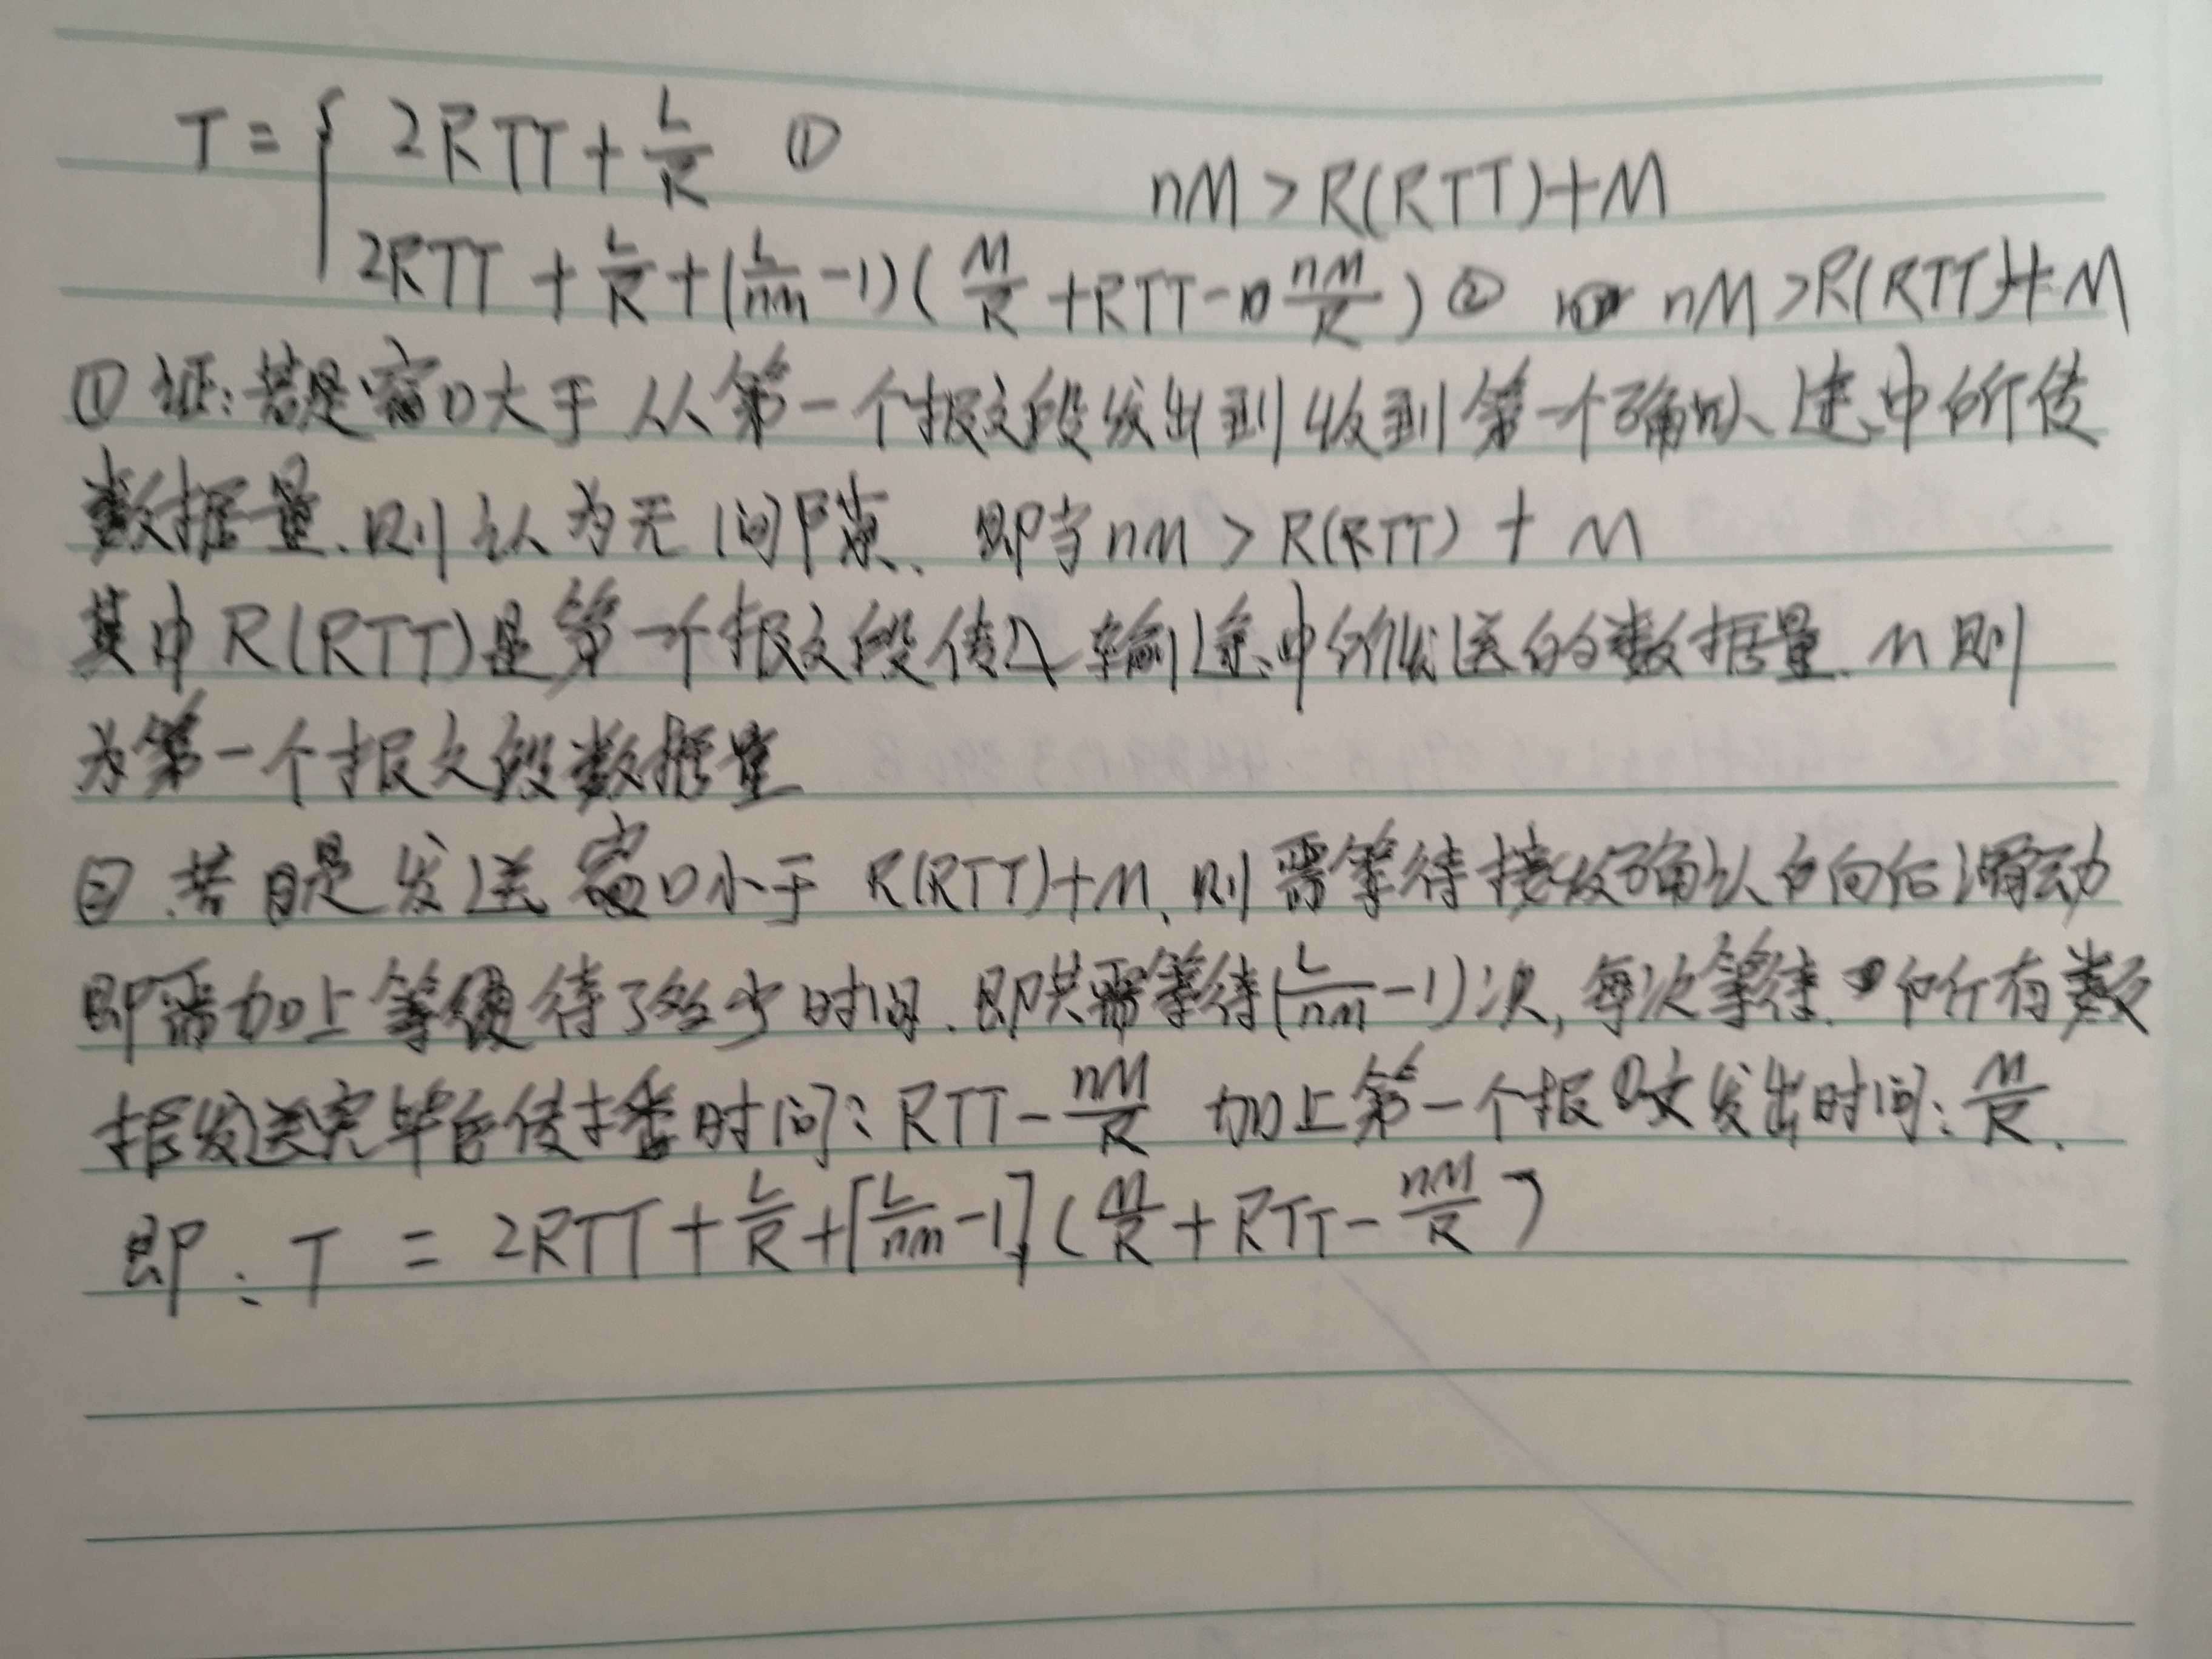 T = { 2RTT + L/R ① nM > R(RTT)+M
2RTT + L/R + (L/nm -1)( M/R +RTT- nM/R ) ② nM >R(RTT)+M
①证:若是窗口大于从第一个报文段发出到收到第一个确认途中所传
数据量.则认为无间隙、即当nM > R(RTT) + M
其中R(RTT)是第一个报文段传输途中所发送的数据量.M则
为第一个报文段数据量
②.若是发送窗口小于 R(RTT)+M.则需等待接收确认向后滑动
即需加上等待了多少时间.即共需等待(L/nm -1)次,每次等待.所有数
据发送完毕的传播时间:RTT- nM/R 加上第一个报文发出时间:M/R.
即: T = 2RTT + L/R +[L/nm -1] ( M/R + RTT- nM/R )